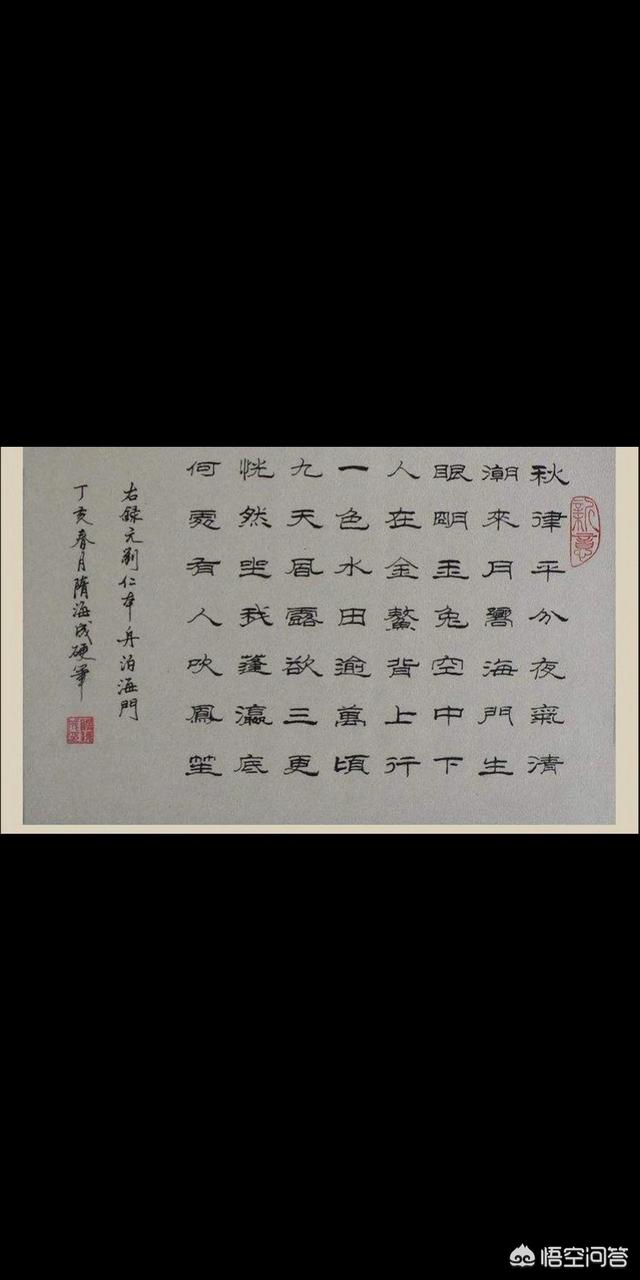 新意
秋律平分夜氣清
潮來月嚮海門生
眼明玉兔空中下
人在金鰲背上行
一色水田逾萬頃
九天風露欲三更
恍然坐我蓬瀛底
何處有人吹鳳笙
右錄元劉仁本舟泊海門
丁亥春月隋海成硬筆
悟空问答